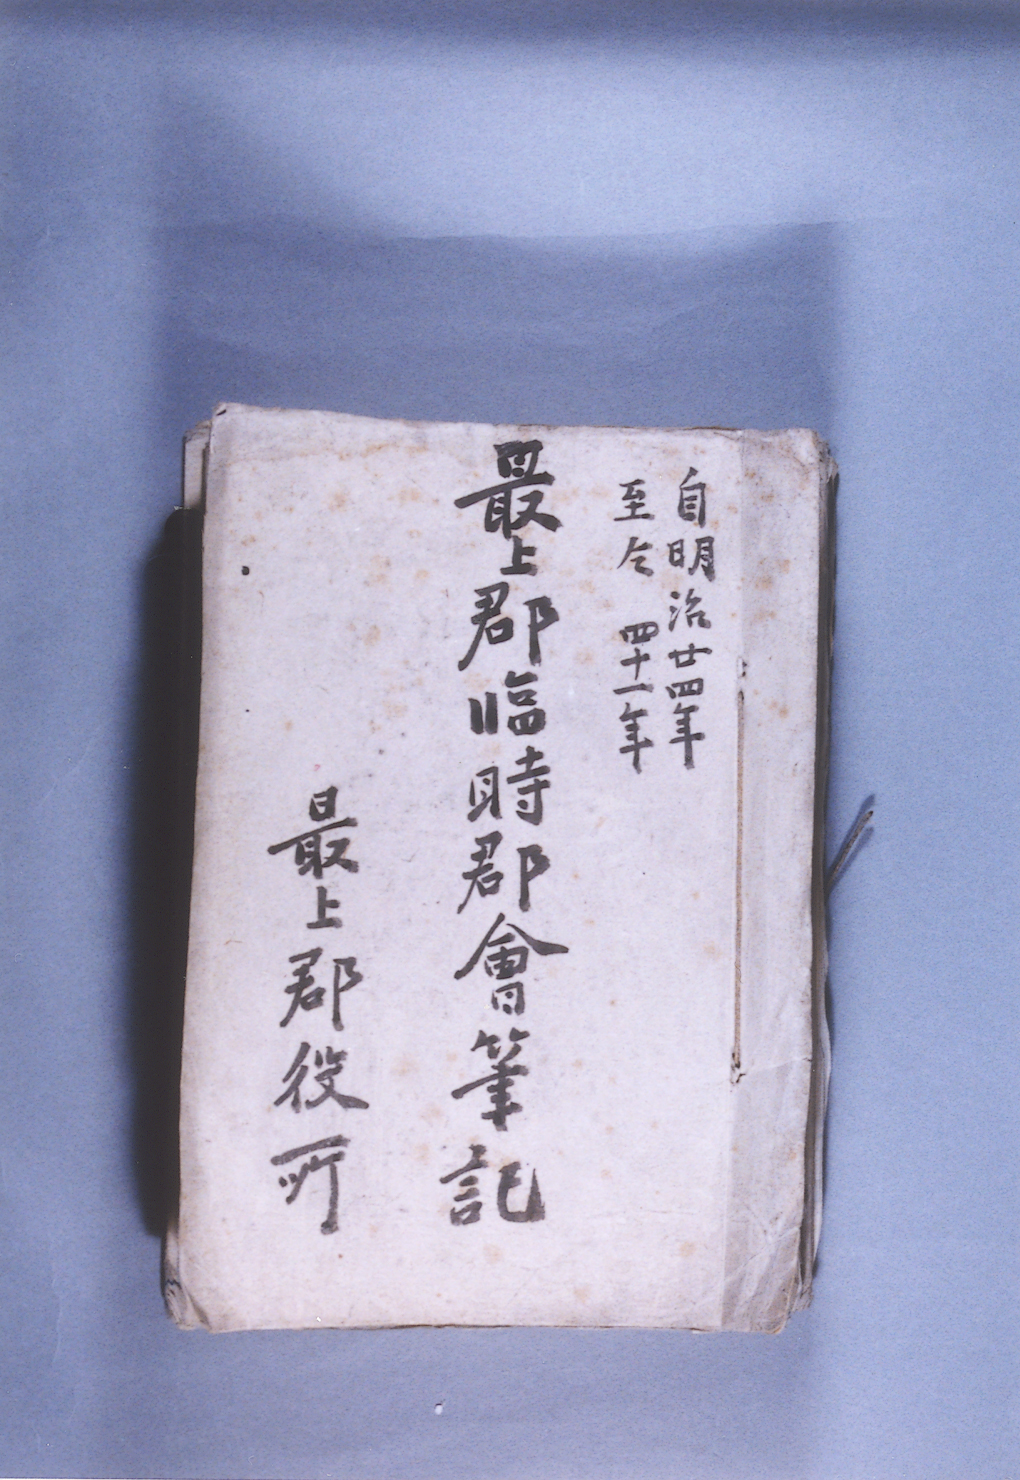 自明治廿四年
至仝 四十一年
最上郡臨時郡會筆記
最上郡役所